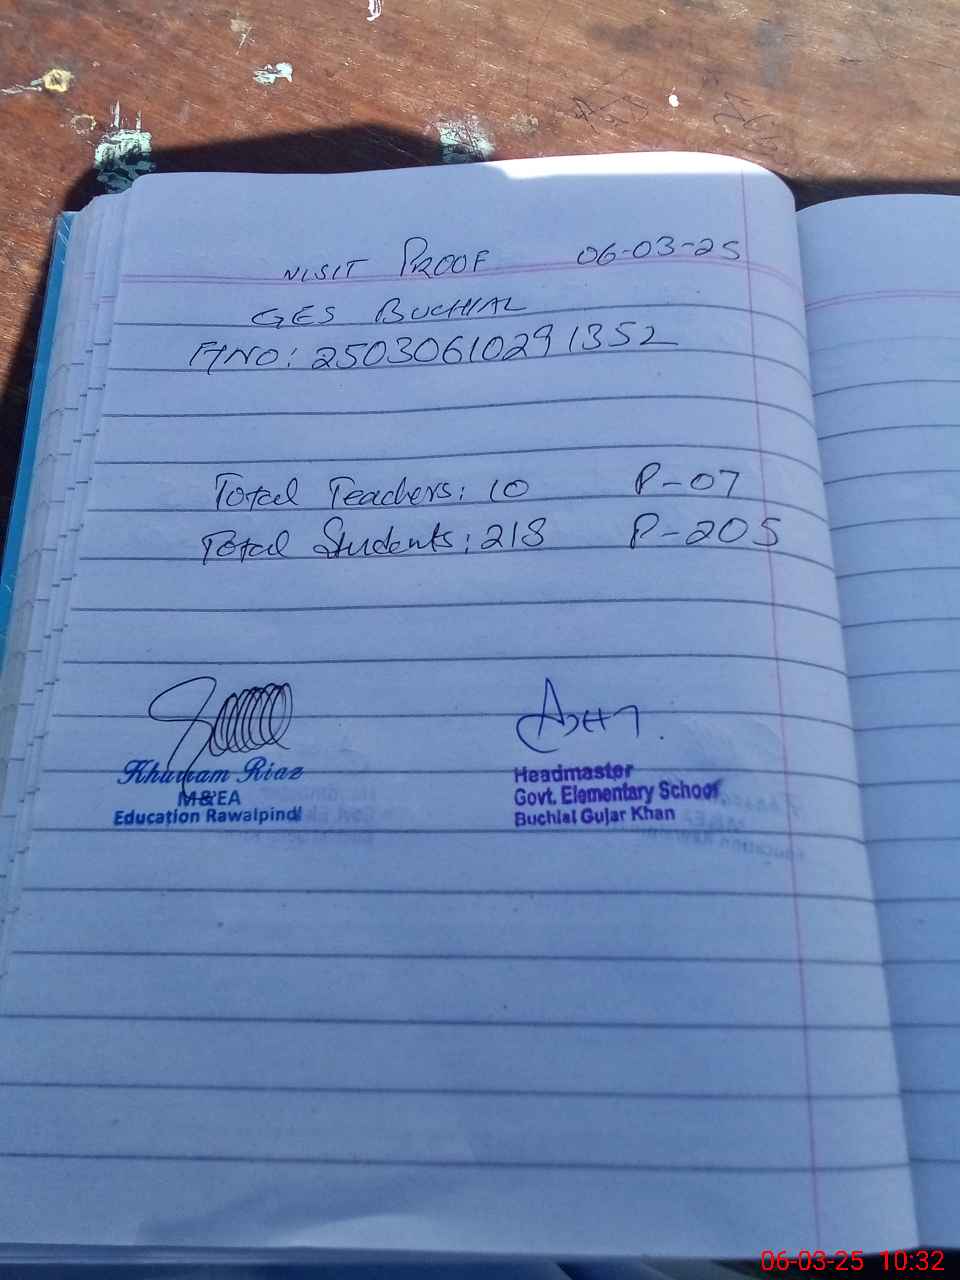 VISIT PROOF 06-03-25
GES BUCHIAL
A/NO: 25030610291352
Total Teachers: 10 P-07
Total Students: 218 P-205
Khurram Riaz
M&EA
Education Rawalpindi
Headmaster
Govt. Elementary School
Buchial Gujar Khan
06-03-25 10:32